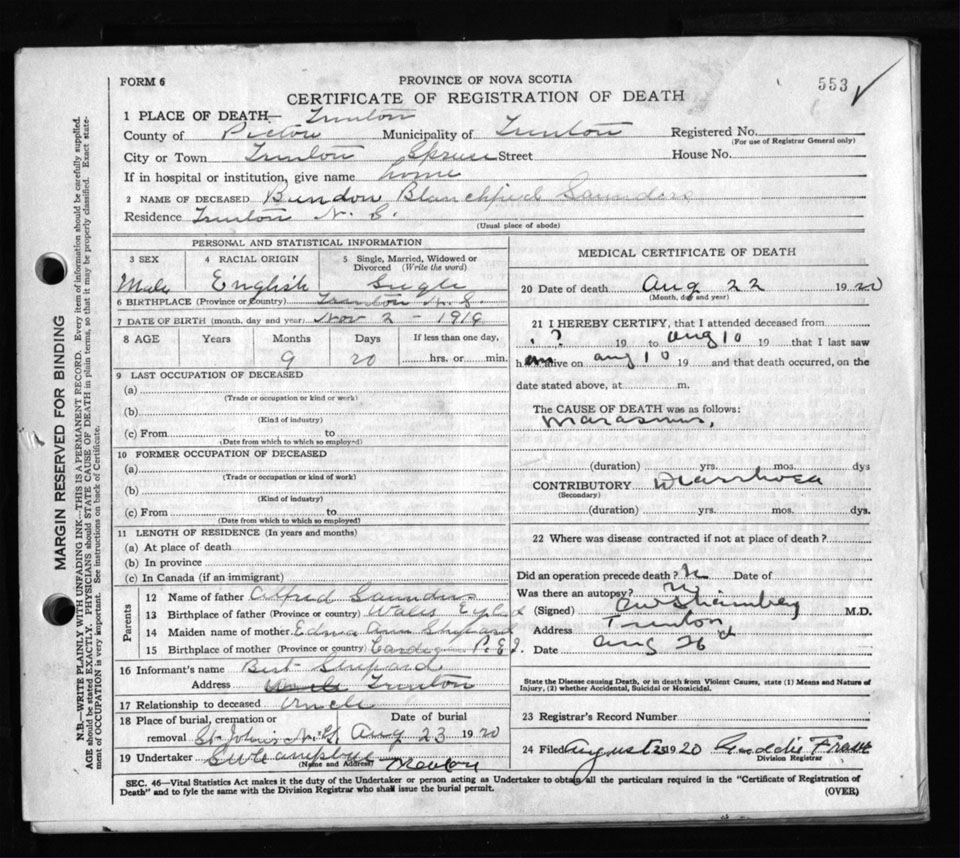 FORM 6
PROVINCE OF NOVA SCOTIA
553
CERTIFICATE OF REGISTRATION OF DEATH
1 PLACE OF DEATH— Trenton
County of Pictou Municipality of Trenton Registered No.
(For use of Registrar General only)
City or Town Trenton Spruce Street House No.
If in hospital or institution, give name home
2 NAME OF DECEASED Blanchfield Saunders
Residence Trenton N. S.
(Usual place of abode)
PERSONAL AND STATISTICAL INFORMATION
3 SEX 4 RACIAL ORIGIN 5 Single, Married, Widowed or Divorced (Write the word)
Male English Single
6 BIRTHPLACE (Province or Country) Trenton N. S.
7 DATE OF BIRTH (month, day and year) Nov 2 - 1919
8 AGE Years Months Days If less than one day,
9 20 hrs. or min.
9 LAST OCCUPATION OF DECEASED
(a)
(Trade or occupation or kind or work)
(b)
(Kind of industry)
(c) From to
(Date from which to which so employed)
10 FORMER OCCUPATION OF DECEASED
(a)
(Trade or occupation or kind of work)
(b)
(Kind of industry)
(c) From to
(Date from which to which so employed)
11 LENGTH OF RESIDENCE (In years and months)
(a) At place of death
(b) In province
(c) In Canada (if an immigrant)
Parents
12 Name of father Alfred Saunders
13 Birthplace of father (Province or country) Wales
14 Maiden name of mother Edna Ann Shepard
15 Birthplace of mother (Province or country) Cardigan P.E.I.
16 Informant's name Bert Shepard
Address Trenton
17 Relationship to deceased Uncle
18 Place of burial, cremation or removal St John's N. G. Date of burial Aug 23 1920
19 Undertaker
(Name and Address)
MEDICAL CERTIFICATE OF DEATH
20 Date of death Aug 22 1920
(Month, day and year)
21 I HEREBY CERTIFY, that I attended deceased from
? 19 to Aug 10 19 that I last saw
h alive on Aug 10 19 and that death occurred, on the
date stated above, at m.
The CAUSE OF DEATH was as follows:
Marasmus,
(duration) yrs. mos. dys
CONTRIBUTORY Diarrhoea
(Secondary)
(duration) yrs. mos. dys.
22 Where was disease contracted if not at place of death?
Did an operation precede death? No Date of
Was there an autopsy? No
(Signed) M.D.
Address Trenton
Date Aug 26
State the Disease causing Death, or in death from Violent Causes, state (1) Means and Nature of
Injury, (2) whether Accidental, Suicidal or Homicidal.
23 Registrar's Record Number
24 Filed August 1920
Division Registrar
SEC. 46—Vital Statistics Act makes it the duty of the Undertaker or person acting as Undertaker to obtain all the particulars required in the "Certificate of Registration of
Death" and to fyle the same with the Division Registrar who shall issue the burial permit.
(OVER)
MARGIN RESERVED FOR BINDING
N.B.—WRITE PLAINLY WITH UNFADING INK—THIS IS A PERMANENT RECORD. Every item of information should be carefully supplied.
AGE should be stated EXACTLY. PHYSICIANS should STATE CAUSE OF DEATH in plain terms, so that it may be properly classified. Exact state-
ment of OCCUPATION is very important. See instructions on back of Certificate.